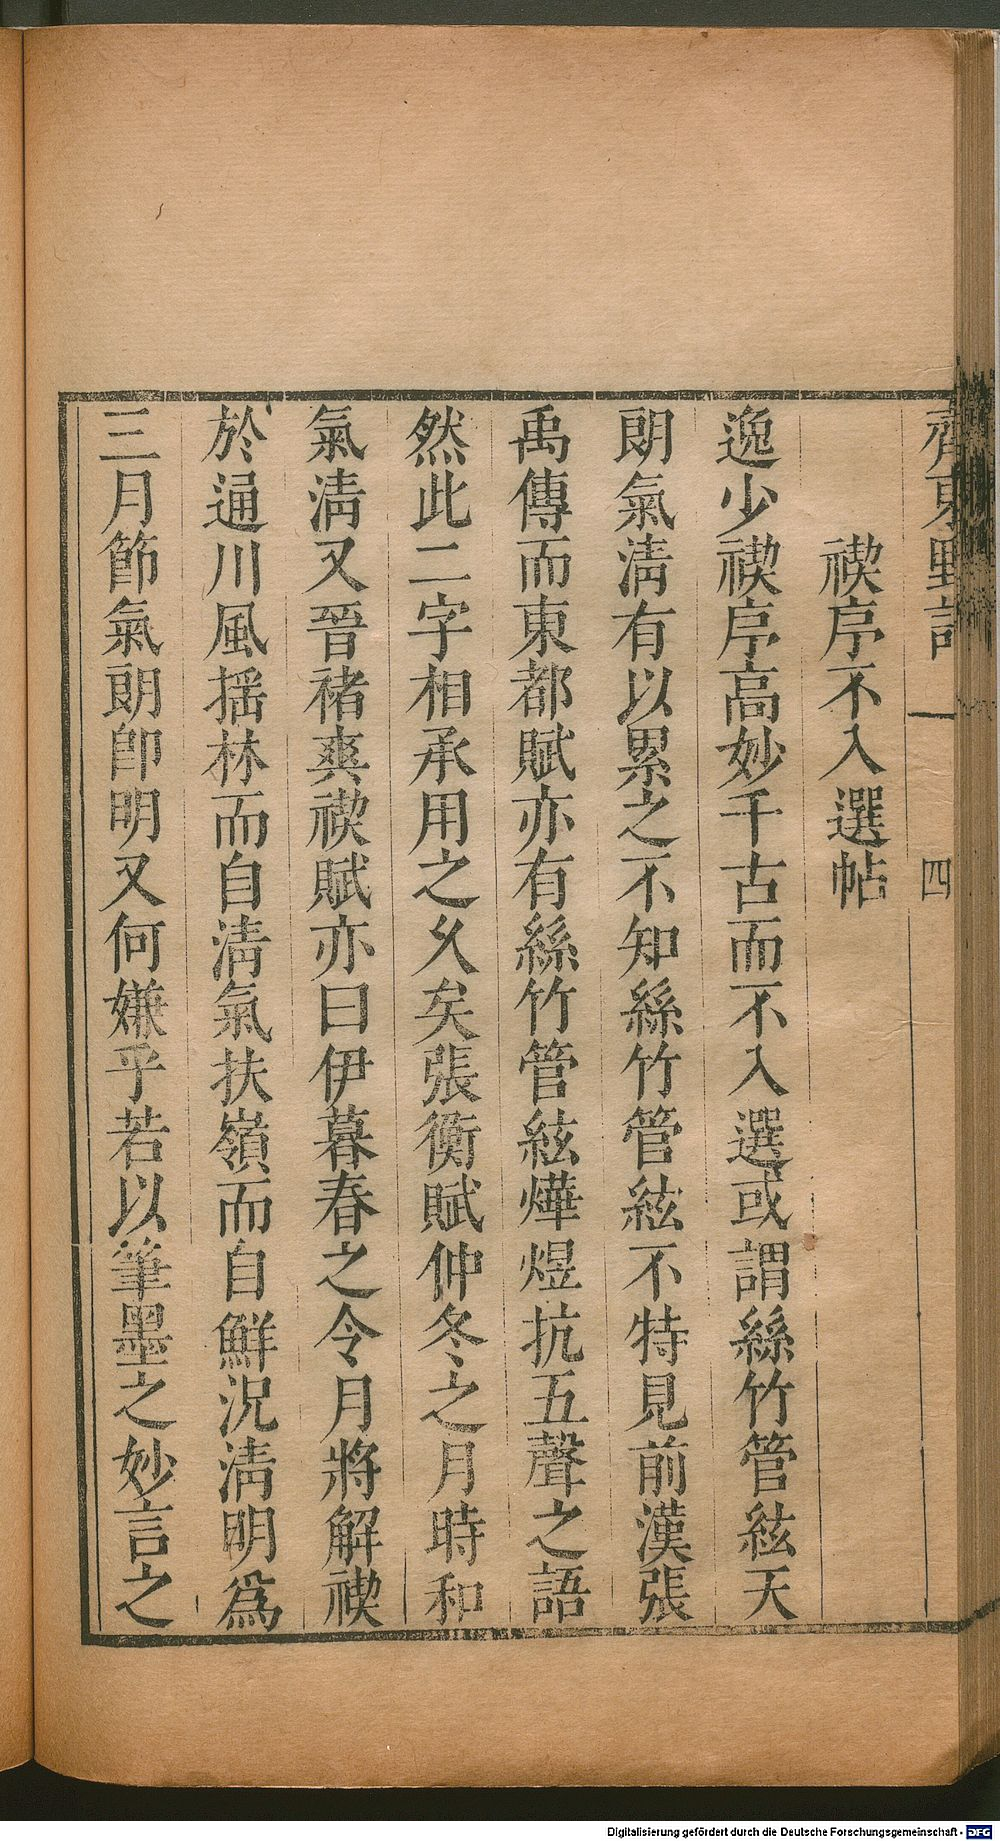 齊東野語
四
禊序不入選帖
逸少禊序高妙千古而不入選或謂絲竹管絃天
朗氣淸有以累之不知絲竹管絃不特見前漢張
禹傳而東都賦亦有絲竹管絃燁煜抗五聲之語
然此二字相承用之久矣張衡賦仲冬之月時和
氣淸又晉禇爽禊賦亦曰伊暮春之令月將解禊
於通川風揺林而自淸氣扶嶺而自鮮況淸明爲
三月節氣朗卽明又何嫌乎若以筆墨之妙言之
Digitalisierung gefördert durch die Deutsche Forschungsgemeinschaft - DFG